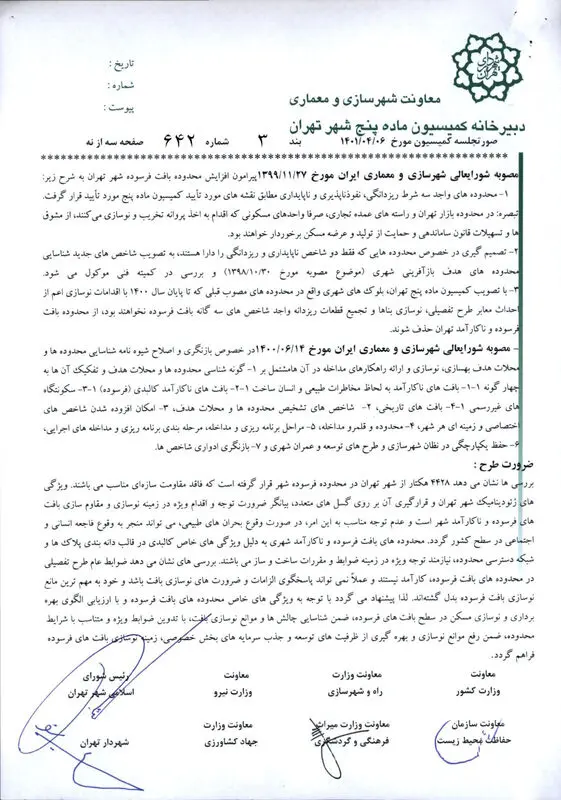 شهرداری تهران
تاریخ :
شماره :
پیوست :
معاونت شهرسازی و معماری
دبیرخانه کمیسیون ماده پنج شهر تهران
صورتجلسه کمیسیون مورخ ۱۴۰۱/۰۴/۰۶ بند ۳ شماره ۶۴۲ صفحه سه از نه
مصوبه شورایعالی شهرسازی و معماری ایران مورخ ۱۳۹۹/۱۱/۲۷ پیرامون افزایش محدوده بافت فرسوده شهر تهران به شرح زیر:
۱- محدوده های واجد سه شرط ریزدانگی، نفوذناپذیری و ناپایداری مطابق نقشه های مورد تأیید کمیسیون ماده پنج مورد تأیید قرار گرفت.
تبصره: در محدوده بازار تهران و راسته های عمده تجاری، صرفا واحدهای مسکونی که اقدام به اخذ پروانه تخریب و نوسازی می‌کنند، از مشوق
ها و تسهیلات قانون ساماندهی و حمایت از تولید و عرضه مسکن برخوردار خواهند بود.
۲- تصمیم گیری در خصوص محدوده هایی که فقط دو شاخص ناپایداری و ریزدانگی را دارا هستند، به تصویب شاخص های جدید شناسایی
محدوده های هدف بازآفرینی شهری (موضوع مصوبه مورخ ۱۳۹۸/۱۰/۳۰) و بررسی در کمیته فنی موکول می شود.
۳- با تصویب کمیسیون ماده پنج تهران، بلوک های شهری واقع در محدوده های مصوب قبلی که تا پایان سال ۱۴۰۰ با اقدامات نوسازی اعم از
احداث معابر طرح تفصیلی، نوسازی بناها و تجمیع قطعات ریزدانه واجد شاخص های سه گانه بافت فرسوده نخواهند بود، از محدوده بافت
فرسوده و ناکارآمد تهران حذف شوند.
- مصوبه شورایعالی شهرسازی و معماری ایران مورخ ۱۴۰۰/۰۶/۱۴ در خصوص بازنگری و اصلاح شیوه نامه شناسایی محدوده ها و
محلات هدف بهسازی، نوسازی و ارائه راهکارهای مداخله در آن هامشتمل بر ۱- گونه شناسی محدوده ها و محلات هدف و تفکیک آن ها به
چهار گونه ۱-۱- بافت های ناکارآمد به لحاظ مخاطرات طبیعی و انسان ساخت ۱-۲- بافت های ناکارآمد کالبدی (فرسوده) ۱-۳- سکونتگاه
های غیررسمی ۱-۴- بافت های تاریخی، ۲- شاخص های تشخیص محدوده ها و محلات هدف، ۳- امکان افزوده شدن شاخص های
اختصاصی و زمینه ای هر شهر، ۴- محدوده و قلمرو مداخله، ۵- مراحل برنامه ریزی و مداخله، مرحله بندی برنامه ریزی و مداخله های اجرایی،
۶- حفظ یکپارچگی در نظان شهرسازی و طرح های توسعه و عمران شهری و ۷- بازنگری ادواری شاخص ها.
ضرورت طرح :
بررسی ها نشان می دهد ۴۴۲۸ هکتار از شهر تهران در محدوده فرسوده شهر قرار گرفته است که فاقد مقاومت سازه‌ای مناسب می باشند. ویژگی
های ژئودینامیک شهر تهران و قرارگیری آن بر روی گسل های متعدد، بیانگر ضرورت توجه و اقدام ویژه در زمینه نوسازی و مقاوم سازی بافت
های فرسوده و ناکارآمد شهر است و عدم توجه مناسب به این امر، در صورت وقوع بحران های طبیعی، می تواند منجر به وقوع فاجعه انسانی و
اجتماعی در سطح کشور گردد. محدوده های بافت فرسوده و ناکارآمدی شهری به دلیل ویژگی های خاص کالبدی در قالب دانه بندی پلاک ها و
شبکه دسترسی محدوده، نیازمند توجه ویژه در زمینه ضوابط و مقررات ساخت و ساز می باشند. بررسی های نشان می دهد ضوابط عام طرح تفصیلی
در محدوده های بافت فرسوده، کارآمد نیستند و عملاً نمی تواند پاسخگوی الزامات و ضرورت های نوسازی بافت باشد و خود به مهم ترین مانع
نوسازی بافت فرسوده بدل گشته‌اند. لذا پیشنهاد می گردد با توجه به ویژگی های خاص محدوده های بافت فرسوده و با ارزیابی الگوی بهره
برداری و نوسازی مسکن در سطح بافت های فرسوده، ضمن شناسایی چالش ها و موانع نوسازی بافت، با تدوین ضوابط ویژه و متناسب با شرایط
محدوده، ضمن رفع موانع نوسازی و بهره گیری از ظرفیت های توسعه و جذب سرمایه های بخش خصوصی، زمینه نوسازی بافت های فرسوده
فراهم گردد.
معاونت معاونت وزارت معاونت رئیس شورای
وزارت کشور راه و شهرسازی وزارت نیرو اسلامی شهر تهران
معاونت سازمان معاونت وزارت میراث معاونت وزارت
حفاظت محیط زیست فرهنگی و گردشگری جهاد کشاورزی شهردار تهران